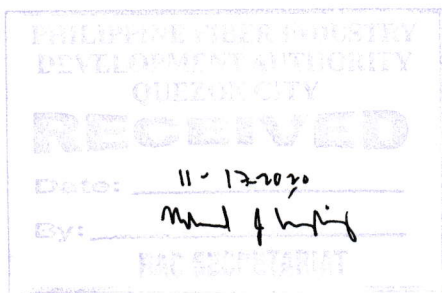 PHILIPPINE FIBER INDUSTRY
DEVELOPMENT AUTHORITY
QUEZON CITY
RECEIVED
Date: 11-17-2020
By:
BAC SECRETARIAT